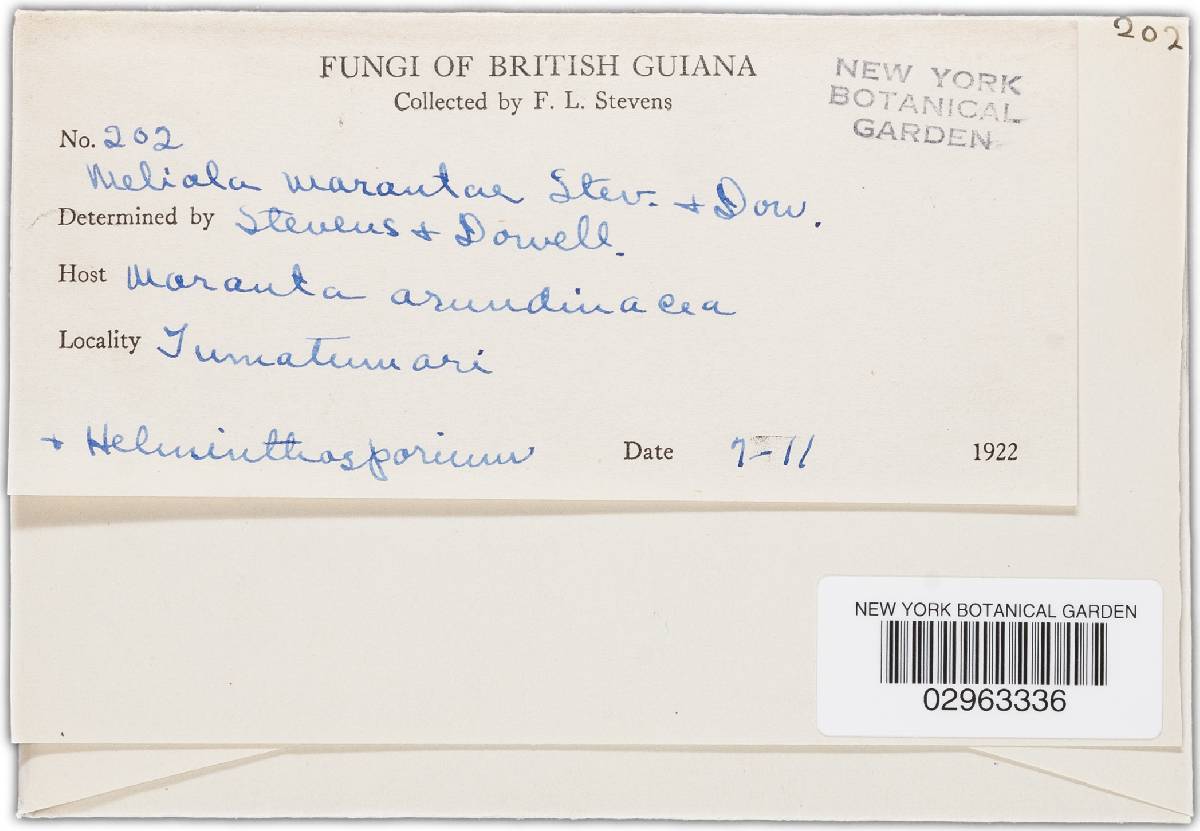 202
FUNGI OF BRITISH GUIANA
Collected by F. L. Stevens
NEW YORK
BOTANICAL
GARDEN
No. 202
Meliola marantae Stev. + Dow.
Determined by Stevens + Dowell.
Host Maranta arundinacea
Locality Tumatumari
+ Helminthosporium Date 7-11 1922
NEW YORK BOTANICAL GARDEN
02963336